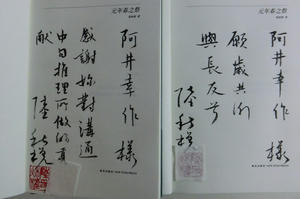 元年春之祭
阿井幸作様
感謝妳對溝通
中日推理所做的貢
献
陸秋槎
元年春之祭
阿井幸作様
願歲共洌
與長友兮
陸秋槎